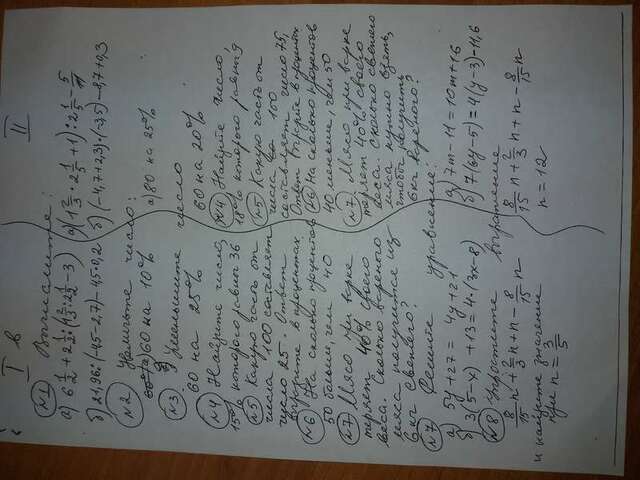 I в II
№1 Вычислите:
а) 6 1/2 + 2 1/2 : (1 2/3 : 2 2/3 - 3) а) (1 2/3 : 2 1/2 + 1) : 2 1/2 - 5/11
б) 2,96 : (-4,5-2,7) - 4,5·0,2 б) (-4,7+2,3) · (-3,5) - 8,7+0,3
№2 Увеличьте число:
а) 60 на 10% а) 80 на 25%
№3 Уменьшите число
60 на 25% 60 на 20%
№4 Найдите число, №4 Найдите число,
15% которого равны 36 18% которого равны 9
№5 Какую часть от №5 Какую часть от
числа 100 составляет числа 100
число 25. Ответ составляет число 75,
выразите в процентах Ответ выразите в процентах
№6 На сколько процентов №6 На сколько процентов
50 больше, чем 40 40 меньше, чем 50
№7 Мясо при варке №7 Мясо при варке
теряет 40% своего теряет 40% своего
веса. Сколько вареного веса. Сколько свежего
мяса получится из мяса нужно взять,
6кг свежего? чтобы получить
6кг вареного?
№7 Решите уравнение:
а) 5y + 27 = 4y + 21 а) 7m - 11 = 10m + 16
б) 3(5-x) + 13 = 4·(3x-8) б) 7(6y-5) = 4(y-3) + 11,6
№8 Упростите выражение
8/15 n + 2/3 n + n - 8/15 n 8/15 n + 2/3 n + n - 8/15 n
и найдите значение
при n = 3/5 n = 12